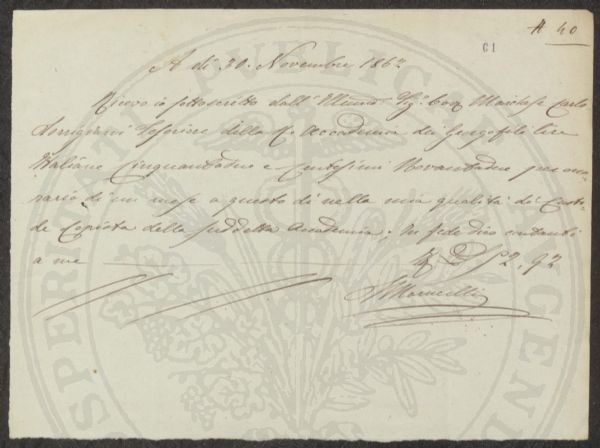 # 40
61
A dì 30. Novembre 1862
Ricevo io sottoscritto dall' Illmo Sigr Marchese Carlo
Tesoriere della R. Accademia dei Georgofili lire
Italiane Cinquantadue e Centesimi Novantadue per ono-
rario di un mese a questo dì nella mia qualità di Custo-
de Copista della suddetta Accademia; In fede dico contanti
a me 52,92